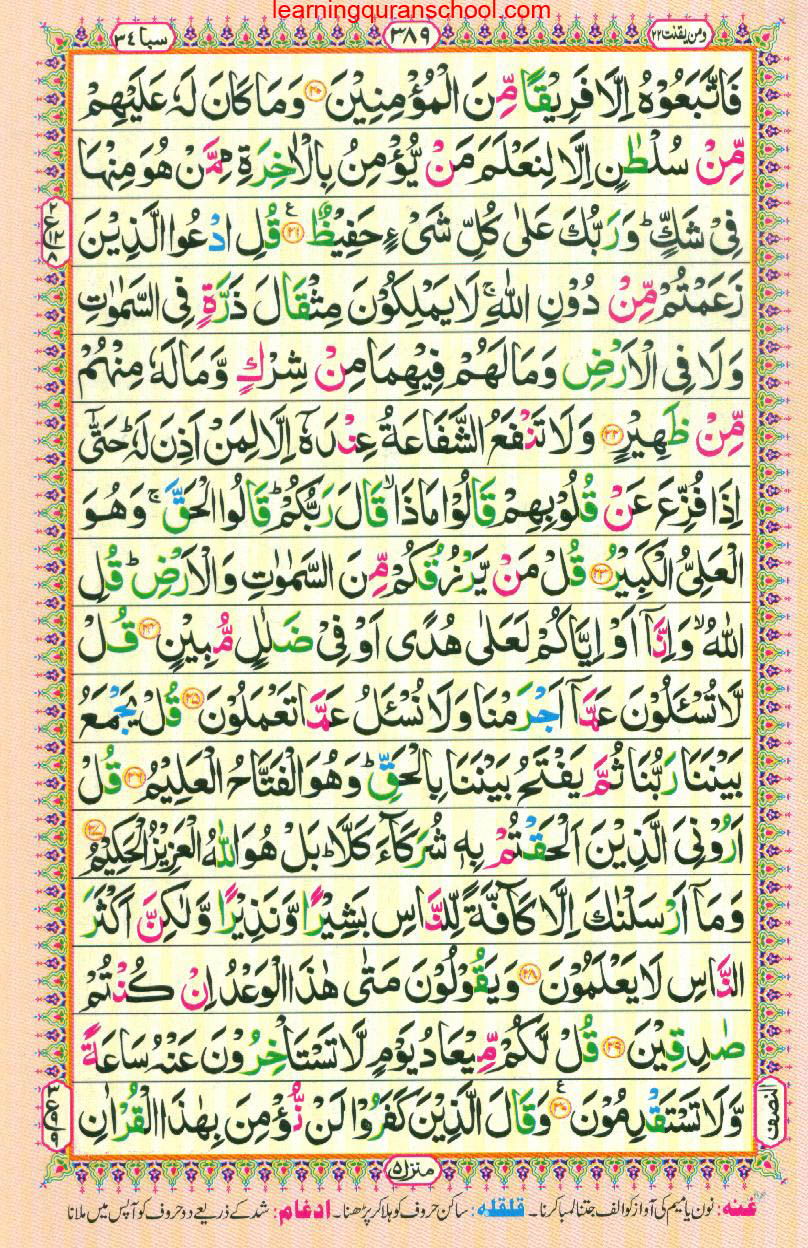 learningquranschool.com
ومن یقنت ۲۲
۳۸۹
سبا ۳٤
فَاتَّبَعُوْهُ اِلَّا فَرِیْقًا مِّنَ الْمُؤْمِنِیْنَ ۲۰ وَمَا كَانَ لَهٗ عَلَیْهِمْ
مِّنْ سُلْطٰنٍ اِلَّا لِنَعْلَمَ مَنْ یُّؤْمِنُ بِالْاٰخِرَةِ مِمَّنْ هُوَ مِنْهَا
فِیْ شَكٍّ ؕ وَرَبُّكَ عَلٰی كُلِّ شَیْءٍ حَفِیْظٌ ۲۱ ع قُلِ ادْعُوا الَّذِیْنَ
زَعَمْتُمْ مِّنْ دُوْنِ اللّٰهِ ۚ لَا یَمْلِكُوْنَ مِثْقَالَ ذَرَّةٍ فِی السَّمٰوٰتِ
وَلَا فِی الْاَرْضِ وَمَا لَهُمْ فِیْهِمَا مِنْ شِرْكٍ وَّمَا لَهٗ مِنْهُمْ
مِّنْ ظَهِیْرٍ ۲۲ وَلَا تَنْفَعُ الشَّفَاعَةُ عِنْدَهٗۤ اِلَّا لِمَنْ اَذِنَ لَهٗ ؕ حَتّٰۤی
اِذَا فُزِّعَ عَنْ قُلُوْبِهِمْ قَالُوْا مَاذَا ۙ قَالَ رَبُّكُمْ ؕ قَالُوا الْحَقَّ ۚ وَهُوَ
الْعَلِیُّ الْكَبِیْرُ ۲۳ قُلْ مَنْ یَّرْزُقُكُمْ مِّنَ السَّمٰوٰتِ وَالْاَرْضِ ؕ قُلِ
اللّٰهُ ۙ وَاِنَّاۤ اَوْ اِیَّاكُمْ لَعَلٰی هُدًی اَوْ فِیْ ضَلٰلٍ مُّبِیْنٍ ۲٤ قُلْ
لَّا تُسْـَٔلُوْنَ عَمَّاۤ اَجْرَمْنَا وَلَا نُسْـَٔلُ عَمَّا تَعْمَلُوْنَ ۲۵ قُلْ یَجْمَعُ
بَیْنَنَا رَبُّنَا ثُمَّ یَفْتَحُ بَیْنَنَا بِالْحَقِّ ؕ وَهُوَ الْفَتَّاحُ الْعَلِیْمُ ۲٦ قُلْ
اَرُوْنِیَ الَّذِیْنَ اَلْحَقْتُمْ بِهٖ شُرَكَآءَ كَلَّا ؕ بَلْ هُوَ اللّٰهُ الْعَزِیْزُ الْحَكِیْمُ ۲۷
وَمَاۤ اَرْسَلْنٰكَ اِلَّا كَآفَّةً لِّلنَّاسِ بَشِیْرًا وَّنَذِیْرًا وَّلٰكِنَّ اَكْثَرَ
النَّاسِ لَا یَعْلَمُوْنَ ۲۸ وَیَقُوْلُوْنَ مَتٰی هٰذَا الْوَعْدُ اِنْ كُنْتُمْ
صٰدِقِیْنَ ۲۹ قُلْ لَّكُمْ مِّیْعَادُ یَوْمٍ لَّا تَسْتَاْخِرُوْنَ عَنْهُ سَاعَةً
وَّلَا تَسْتَقْدِمُوْنَ ۳۰ ع وَقَالَ الَّذِیْنَ كَفَرُوْا لَنْ نُّؤْمِنَ بِهٰذَا الْقُرْاٰنِ
۲ ع ۱۲ ۸
النصف
منزل ۵
غنه: نون یا میم کی آواز کو الف جتنا لمبا کرنا۔ قلقله: ساکن حروف کو ہلا کر پڑھنا۔ ادغام: شد کے ذریعے دو حروف کو آپس میں ملانا